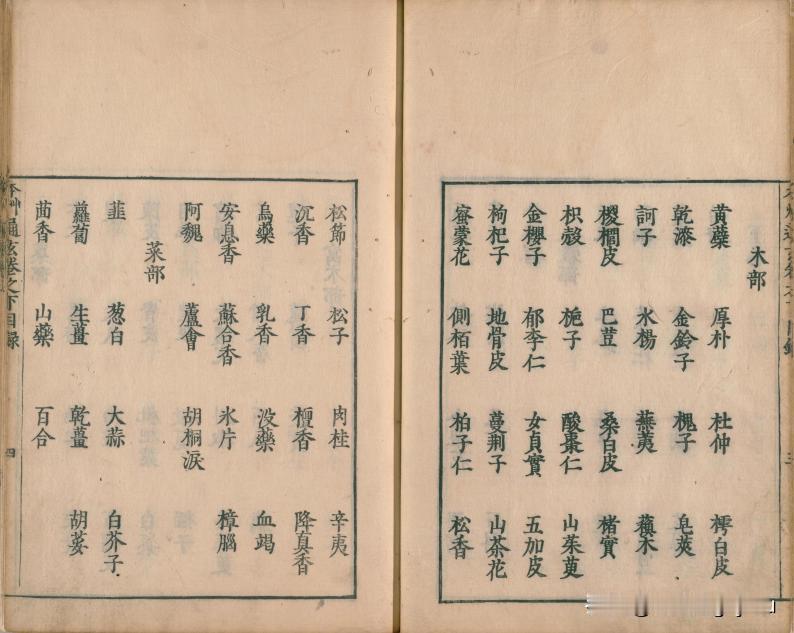 木部
黃蘗 厚朴 杜仲 樗白皮
乾漆 金鈴子 槐子 皂莢
訶子 水楊 蕪荑 蘋木
椶櫚皮 巴荳 桑白皮 楮實
枳殼 梔子 酸棗仁 山茱萸
金櫻子 郁李仁 女貞實 五加皮
枸杞子 地骨皮 蔓荆子 山茶花
蜜蒙花 側栢葉 柏子仁 松香
三
松節 松子 肉桂 辛夷
沉香 丁香 檀香 降真香
烏藥 乳香 没藥 血竭
安息香 蘇合香 氷片 樟腦
阿魏 蘆會 胡桐淚
菜部
韭 葱白 大蒜 白芥子
蘿蔔 生薑 乾薑 胡荽
茴香 山藥 百合
本艸通玄卷之下目録 四